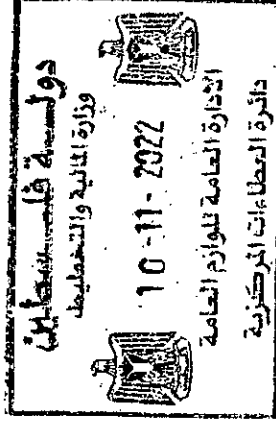 دولة فلسطين
وزارة المالية والتخطيط
10-11-2022
الادارة العامة للوازم العامة
دائرة العطاءات المركزية